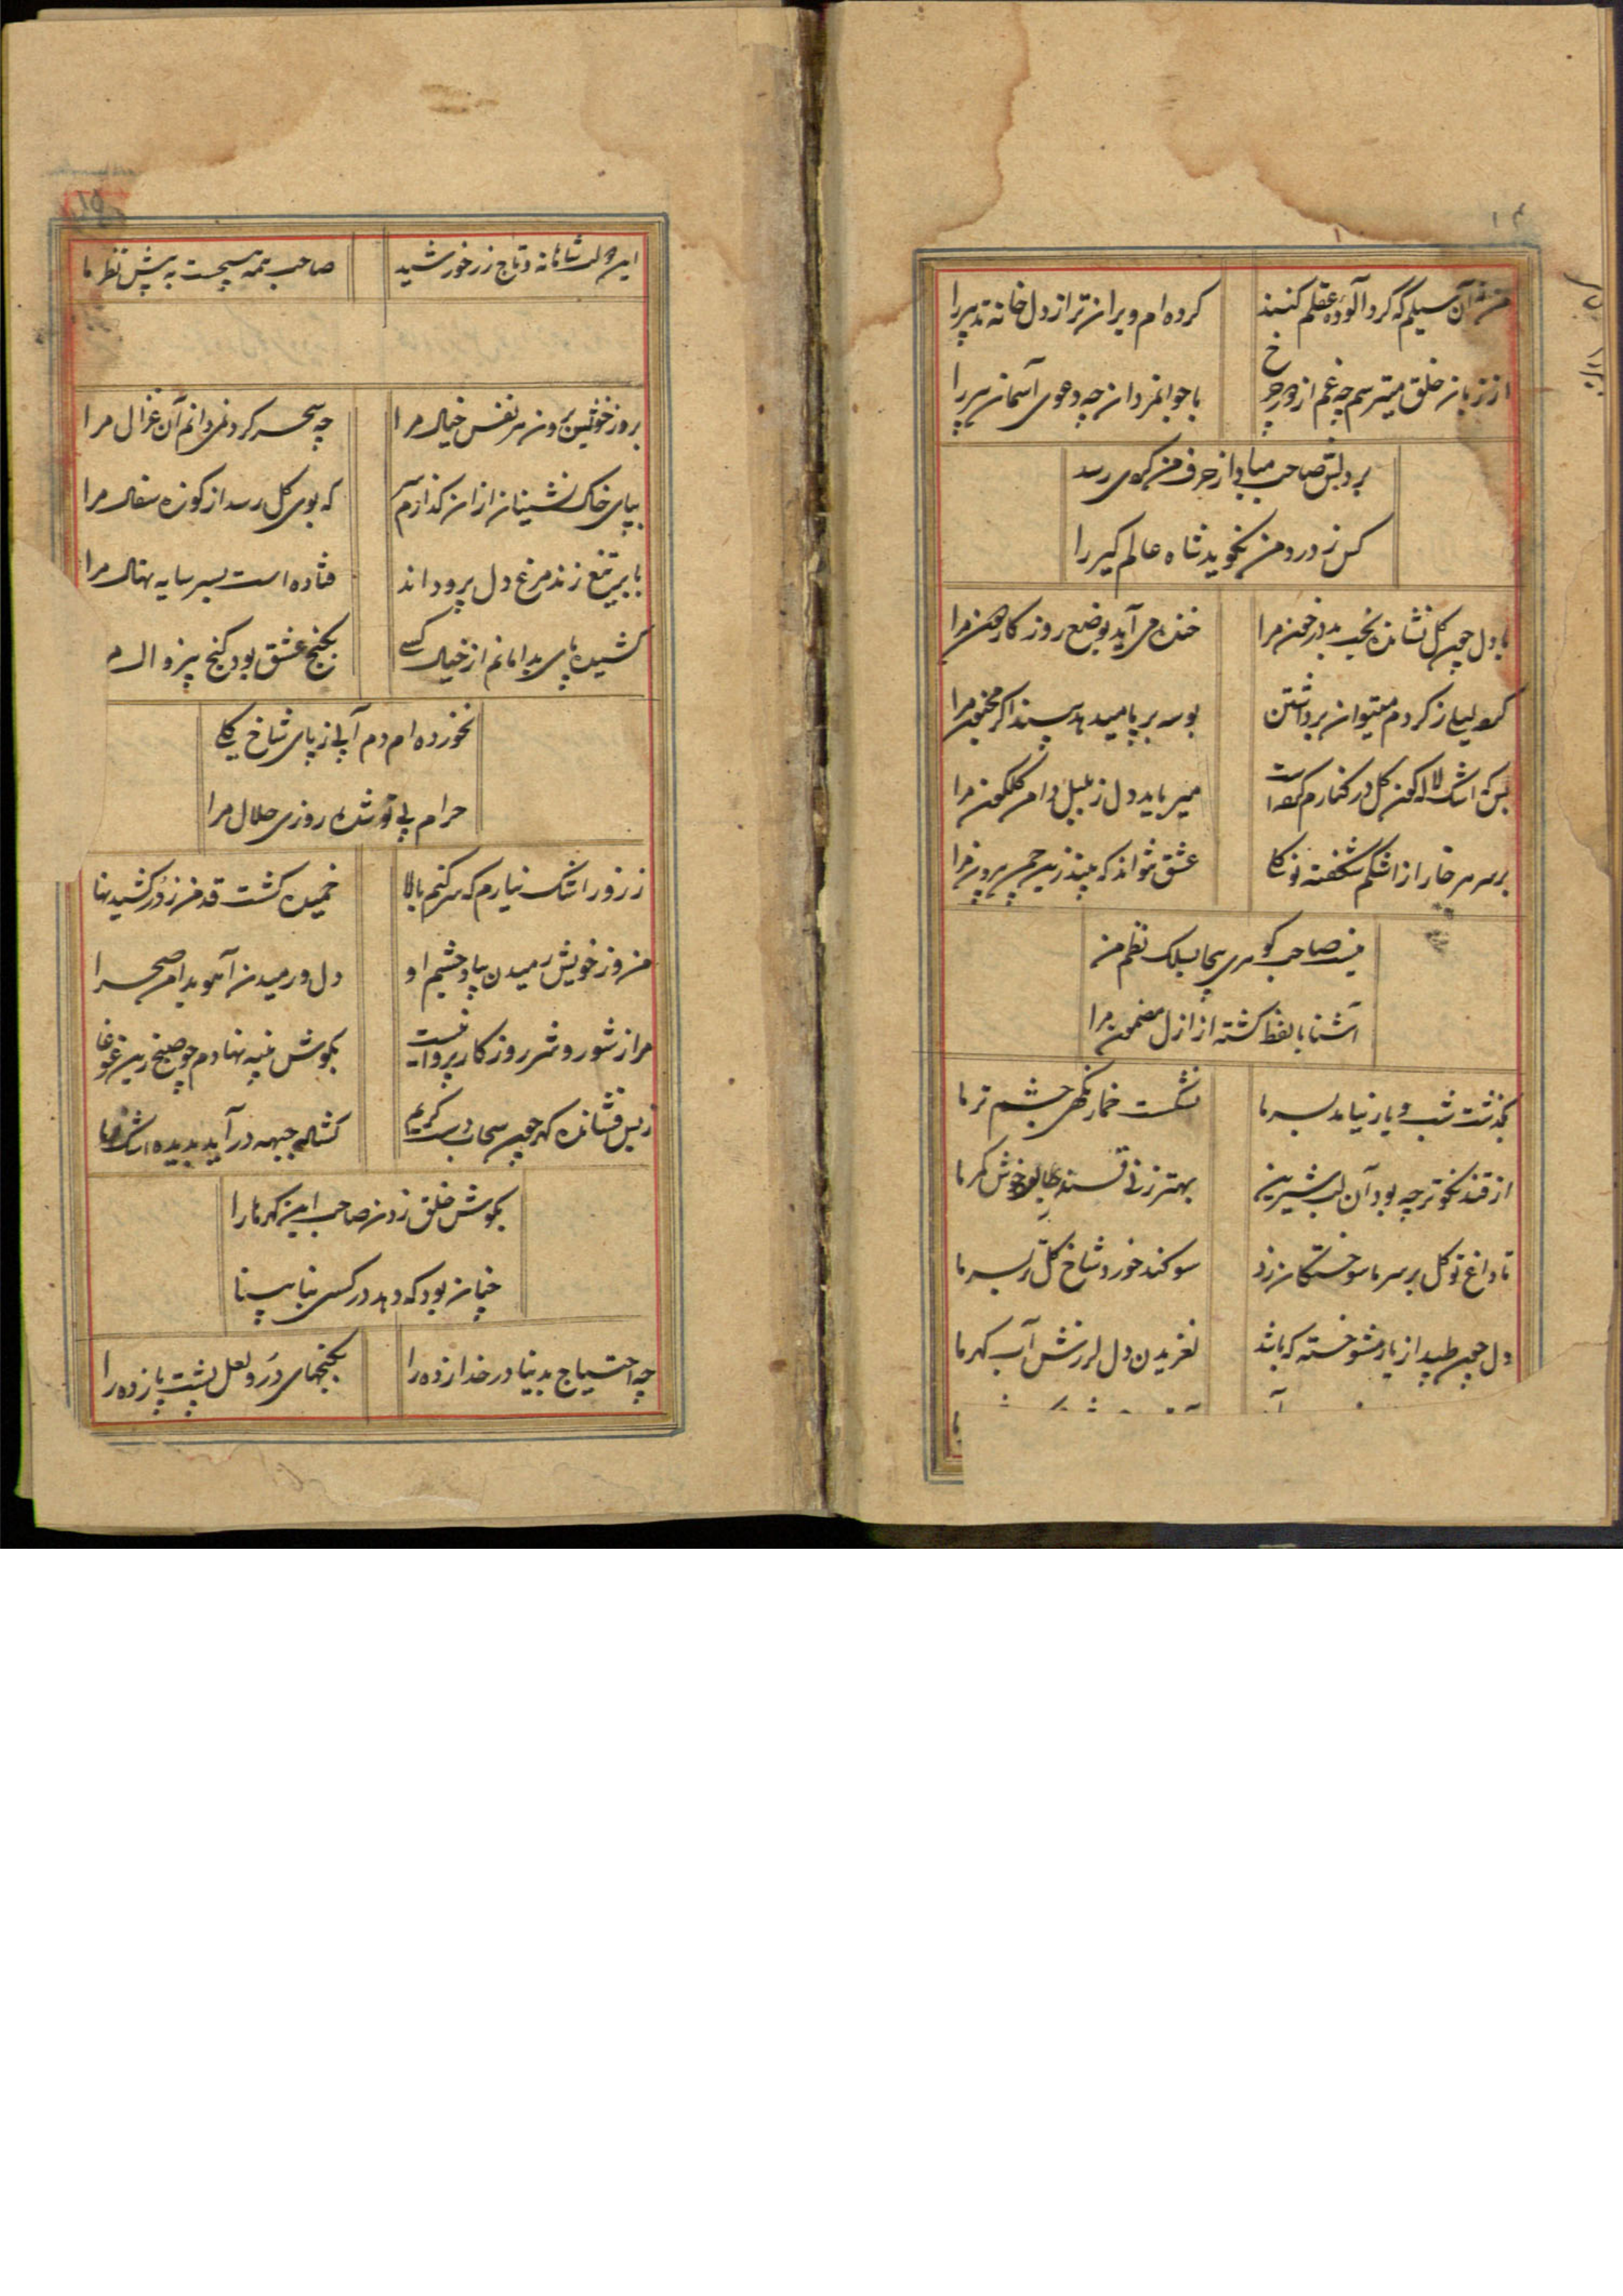 من آن سیلم که گرد آلوده عقلم کنند کرده ام ویران تر از دل خانه تدبیر را
از زبان خلق میترسم چه غم از جور چرخ با جوانمردان چه دعوی آسمان پیر را
بر دلش صاحب مبادا از حرف من کوی رسد
کس ز درد من نگوید شاه عالم گیر را
با دل چون گل نشانده بخت بد در خون مرا خنده می آید بوضع روزگار دون مرا
لیلی ز کردم میتوان برداشتن بوسه بر پا میدهد پسند اگر مجنون مرا
بس که اشک لاله گون گل در کنارم کرده است میرباید دل ز بلبل دامن گلگون مرا
بر سر هر خار از اشکم شکفته نو گلی عشق نتواند که بیند زین چمن بیرون مرا
نیست صاحب گوهری بیجا بسلک نظم من
آشنا با لفظ گشته از ازل مضمون مرا
بگذشت شب و یار نیامد بسر ما نشکست خمار نگهی چشم تر ما
از قند نکوتر چه بود آن لب شیرین بهتر ز نی قند بود خوش کمر ما
تا داغ تو گل بر سر ما سوختگان زد سوگند خورد شاخ گل تر بسر ما
دل چون طپد از یاد تو خسته که باشد لغزیدن دل لرزش آب گهر ما
۱۵
این دولت شاهانه و تاج زر خورشید صاحب همه هیچست به پیش نظر ما
بروز خویش برون هر نفس خیال مرا چه سحر کرد نمی دانم آن غزال مرا
بپای خاک نشینان از ان گذارم سر که بوی گل رسد از کوزه سفال مرا
بابر تیغ زند مرغ دل پر و داند فتاده است بسر سایه نهال مرا
کشیده پای بدامانم از خیال کسے بکنج عشق بود گنج بیزوال م
نخورده ام دم آبی ز پای شاخ گلے
حرام بی تو شده روزی حلال مرا
ز زور اشک نیارم که سر کنم بالا خمیده گشت قد من ز در کشیدنها
من و ز خویش رمیدن بیاد چشم او دل و رمیدن آهو بدامن صحرا
مرا ز شور و شر روزگار پروا نیست بگوش پنبه نهادم چو صبح زین غوغا
ز بس فشانده گهر چون سحاب دست کریم گشاد جبهه در آید بدیده اشک
بگوش خلق ز دن صاحب این گهرها را
چنان بود که دهد در کسی بنا بینا
چه احتیاج بدنیا در خدا زده را بگنجهای در و لعل پشت پا زده را